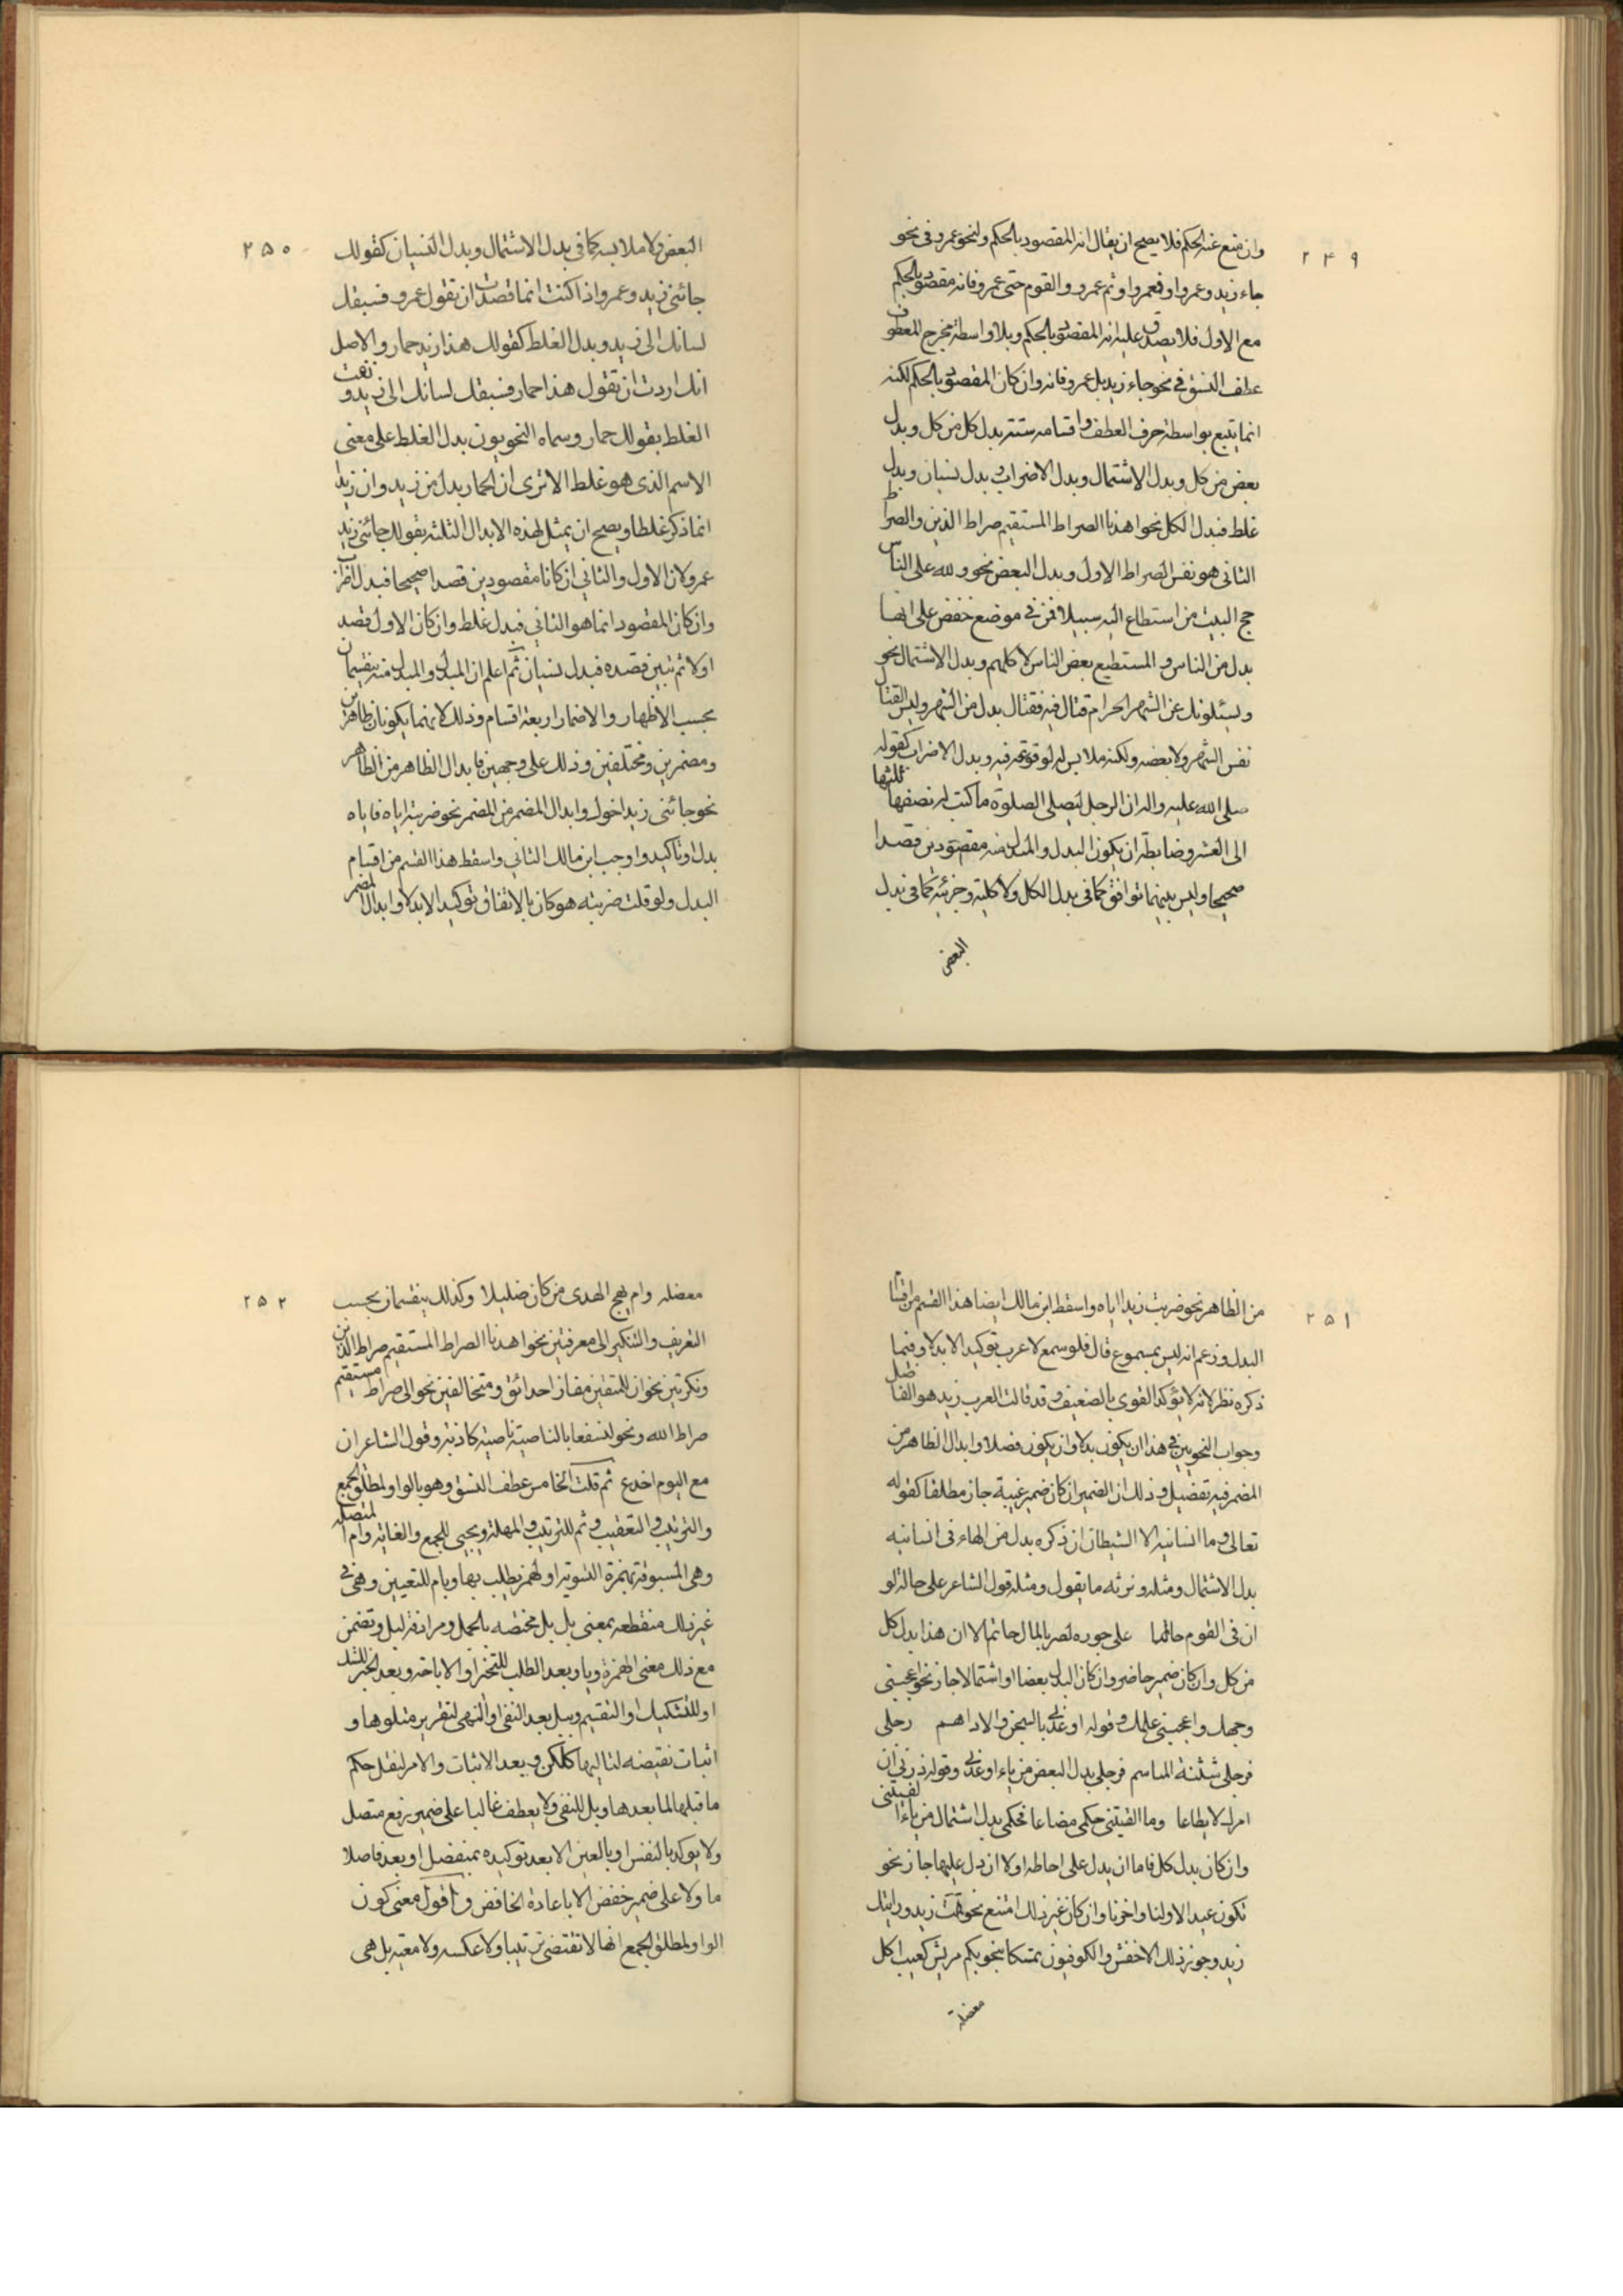 ٢٤٩
وان منع عنه الحكم فلا يصح ان يقال انه المقصود بالحكم ولنحو عمرو في نحو
جاء زيد وعمرو او فعمرو او ثم عمرو والقوم حتى عمرو فانه مقصود بالحكم
مع الاول فلا يصدق عليه انه المقصود بالحكم وبلا واسطة مخرج للمعطوف
عطف النسق في نحو جاء زيد بل عمرو فانه وان كان المقصود بالحكم لكنه
انما يتبع بواسطة حرف العطف واقسامه ستة بدل كل من كل وبدل
بعض من كل وبدل الاشتمال وبدل الاضراب وبدل نسيان وبدل
غلط فبدل الكل نحو اهدنا الصراط المستقيم صراط الذين والصراط
الثاني هو نفس الصراط الاول وبدل البعض نحو ولله على الناس
حج البيت من استطاع اليه سبيلا فمن في موضع خفض على انها
بدل من الناس والمستطيع بعض الناس لا كلهم وبدل الاشتمال نحو
ويسئلونك عن الشهر الحرام قتال فيه فقتال بدل من الشهر وليس القتال
نفس الشهر ولا بعضه ولكنه ملابس له لوقوعه فيه وبدل الاضراب كقوله
صلى الله عليه واله ان الرجل ليصلي الصلوة ما كتب له نصفها ثلثها
الى العشر وضابطه ان يكون البدل والمبدل منه مقصودين قصدا
صحيحا وليس بينهما توافق كما في بدل الكل ولا كلية وجزئية كما في بدل
البعض
٢٥٠
البعض ولا ملابسه كما في بدل الاشتمال وبدل النسيان كقولك
جائني زيد وعمرو اذا كنت انما قصدت ان تقول عمرو فسبقك
لسانك الى زيد وبدل الغلط كقولك هذا زيد حمار والاصل
انك اردت ان تقول هذا حمار فسبقك لسانك الى زيد و رفعت
الغلط بقولك حمار وسماه النحويون بدل الغلط على معنى
الاسم الذى هو غلط الا ترى ان الحمار بدل من زيد وان زيدا
انما ذكر غلطا ويصح ان يمثل لهذه الابدال الثلثة بقولك جائني زيد
عمرو لان الاول والثاني ان كانا مقصودين قصدا صحيحا فبدل اضراب
وان كان المقصود انما هو الثاني فبدل غلط وان كان الاول قصد
اولا ثم تبين قصده فبدل نسيان ثم اعلم ان المبدل والمبدل منه ينقسمان
بحسب الاظهار والاضمار اربعة اقسام وذلك لانهما يكونان ظاهرين
ومضمرين ومختلفين وذلك على وجهين فابدال الظاهر من الظاهر
نحو جائني زيد اخوك وابدال المضمر من المضمر نحو ضربته اياه فاياه
بدل او تاكيد واوجب ابن مالك الثاني واسقط هذا القسم من اقسام
البدل ولو قلت ضربته هو كان بالاتفاق توكيدا لا بدلا وابدال المضمر
٢٥١
من الظاهر نحو ضربت زيدا اياه واسقط ابن مالك ايضا هذا القسم من اقسام
البدل وزعم انه ليس بمسموع قال فلو سمع لاعرب توكيدا لا بدلا وفيما
ذكره نظر لانه لا يؤكد القوى بالضعيف وقد قالت العرب زيد هو الفاضل
وجواب النحويين في هذا ان يكون بدلا وان يكون فصلا وابدال الظاهر من
المضمر فيه تفصيل وذلك ان الضمير ان كان ضمير غيبة جاز مطلقا كقوله
تعالى وما انسانيه الا الشيطان ان ذكره بدل من الهاء في انسانيه
بدل الاشتمال ومثله ونرثه ما يقول ومثله قول الشاعر على حالة لو
ان في القوم حاتما على جوده لضن بالمال حاتم الا ان هذا بدل كل
من كل وان كان ضمير حاضر وان كان البدل بعضا او اشتمالا جاز نحو اعجبتني
وجهك واعجبتني علمك وقوله اوعدني بالسجن والاداهم رجلى
فرجلى شثنة المناسم فرجلى بدل البعض من ياء اوعدني وقوله ذريني ان
امرك لا يطاعا وما الفيتني حكمى مضاعا فحكمى بدل اشتمال من ياء الفيتني
وان كان بدل كل فاما ان يدل على احاطه اولا ان دل عليها جاز نحو
تكون عيدا لاولنا واخرنا وان كان غير ذلك امتنع نحو قمت زيد ورايتك
زيد وجوز ذلك الاخفش والكوفيون تمسكا بنحو بكم قريش كفينا كل
معضلة
٢٥٢
معضله وام نهج الهدى من كان ضليلا وكذلك ينقسمان بحسب
التعريف والتنكير الى معرفتين نحو اهدنا الصراط المستقيم صراط الذين
ونكرتين نحو ان للمتقين مفازا حدائق ومتخالفين نحو الى صراط مستقيم
صراط الله ونحو لنسفعا بالناصية ناصية كاذبة وقول الشاعر ان
مع اليوم اخاه غدوا ثم قلت الخامس عطف النسق وهو بالواو لمطلق الجمع
والترتيب والتعقيب وثم للترتيب والمهلة وبحتى للجمع والغاية وام المتصله
وهى المسبوقة بهمزة التسوية او لهمزة يطلب بها وبام للتعيين وهى في
غير ذلك منقطعه بمعنى بل بل مختصه بالجمل ومرادفة لبل وتضمن
مع ذلك معنى الهمزة وباو بعد الطلب للتخيير او الاباحة وبعد الخبر للشك
او للتشكيك او التقسيم وببل بعد النفى او النهى لتقرير متلوها و
اثبات نقيضه لتاليها كلكن وبعد الاثبات والامر لنقل حكم
ما قبلها لما بعدها وبل للنفى ولا يعطف غالبا على ضمير رفع متصل
ولا يوكد بالنفس او بالعين الا بعد توكيده بمنفصل او بعد فاصل
ما ولا على ضمير خفض الا باعادة الخافض واقول معنى كون
الواو لمطلق الجمع انها لا تقتضى ترتيبا ولا عكسه ولا معيه بل هى